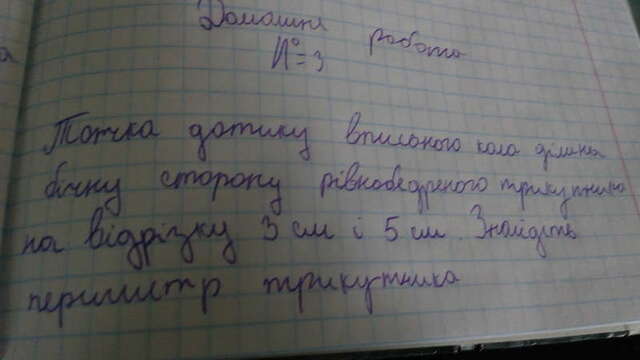 Домашня робота
№3
Точка дотику вписаного кола ділина
бічну сторону рівнобедреного трикутника
на відрізку 3 см і 5 см. Знайдіть
периметр трикутника